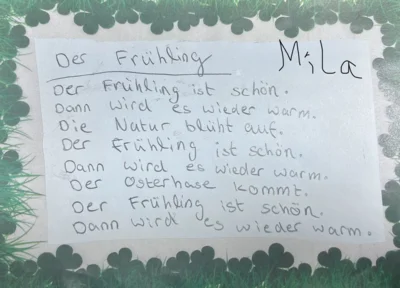 Der Frühling
Mila
Der Frühling ist schön.
Dann wird es wieder warm.
Die Natur blüht auf.
Der Frühling ist schön.
Dann wird es wieder warm.
Der Osterhase kommt.
Der Frühling ist schön.
Dann wird es wieder warm.